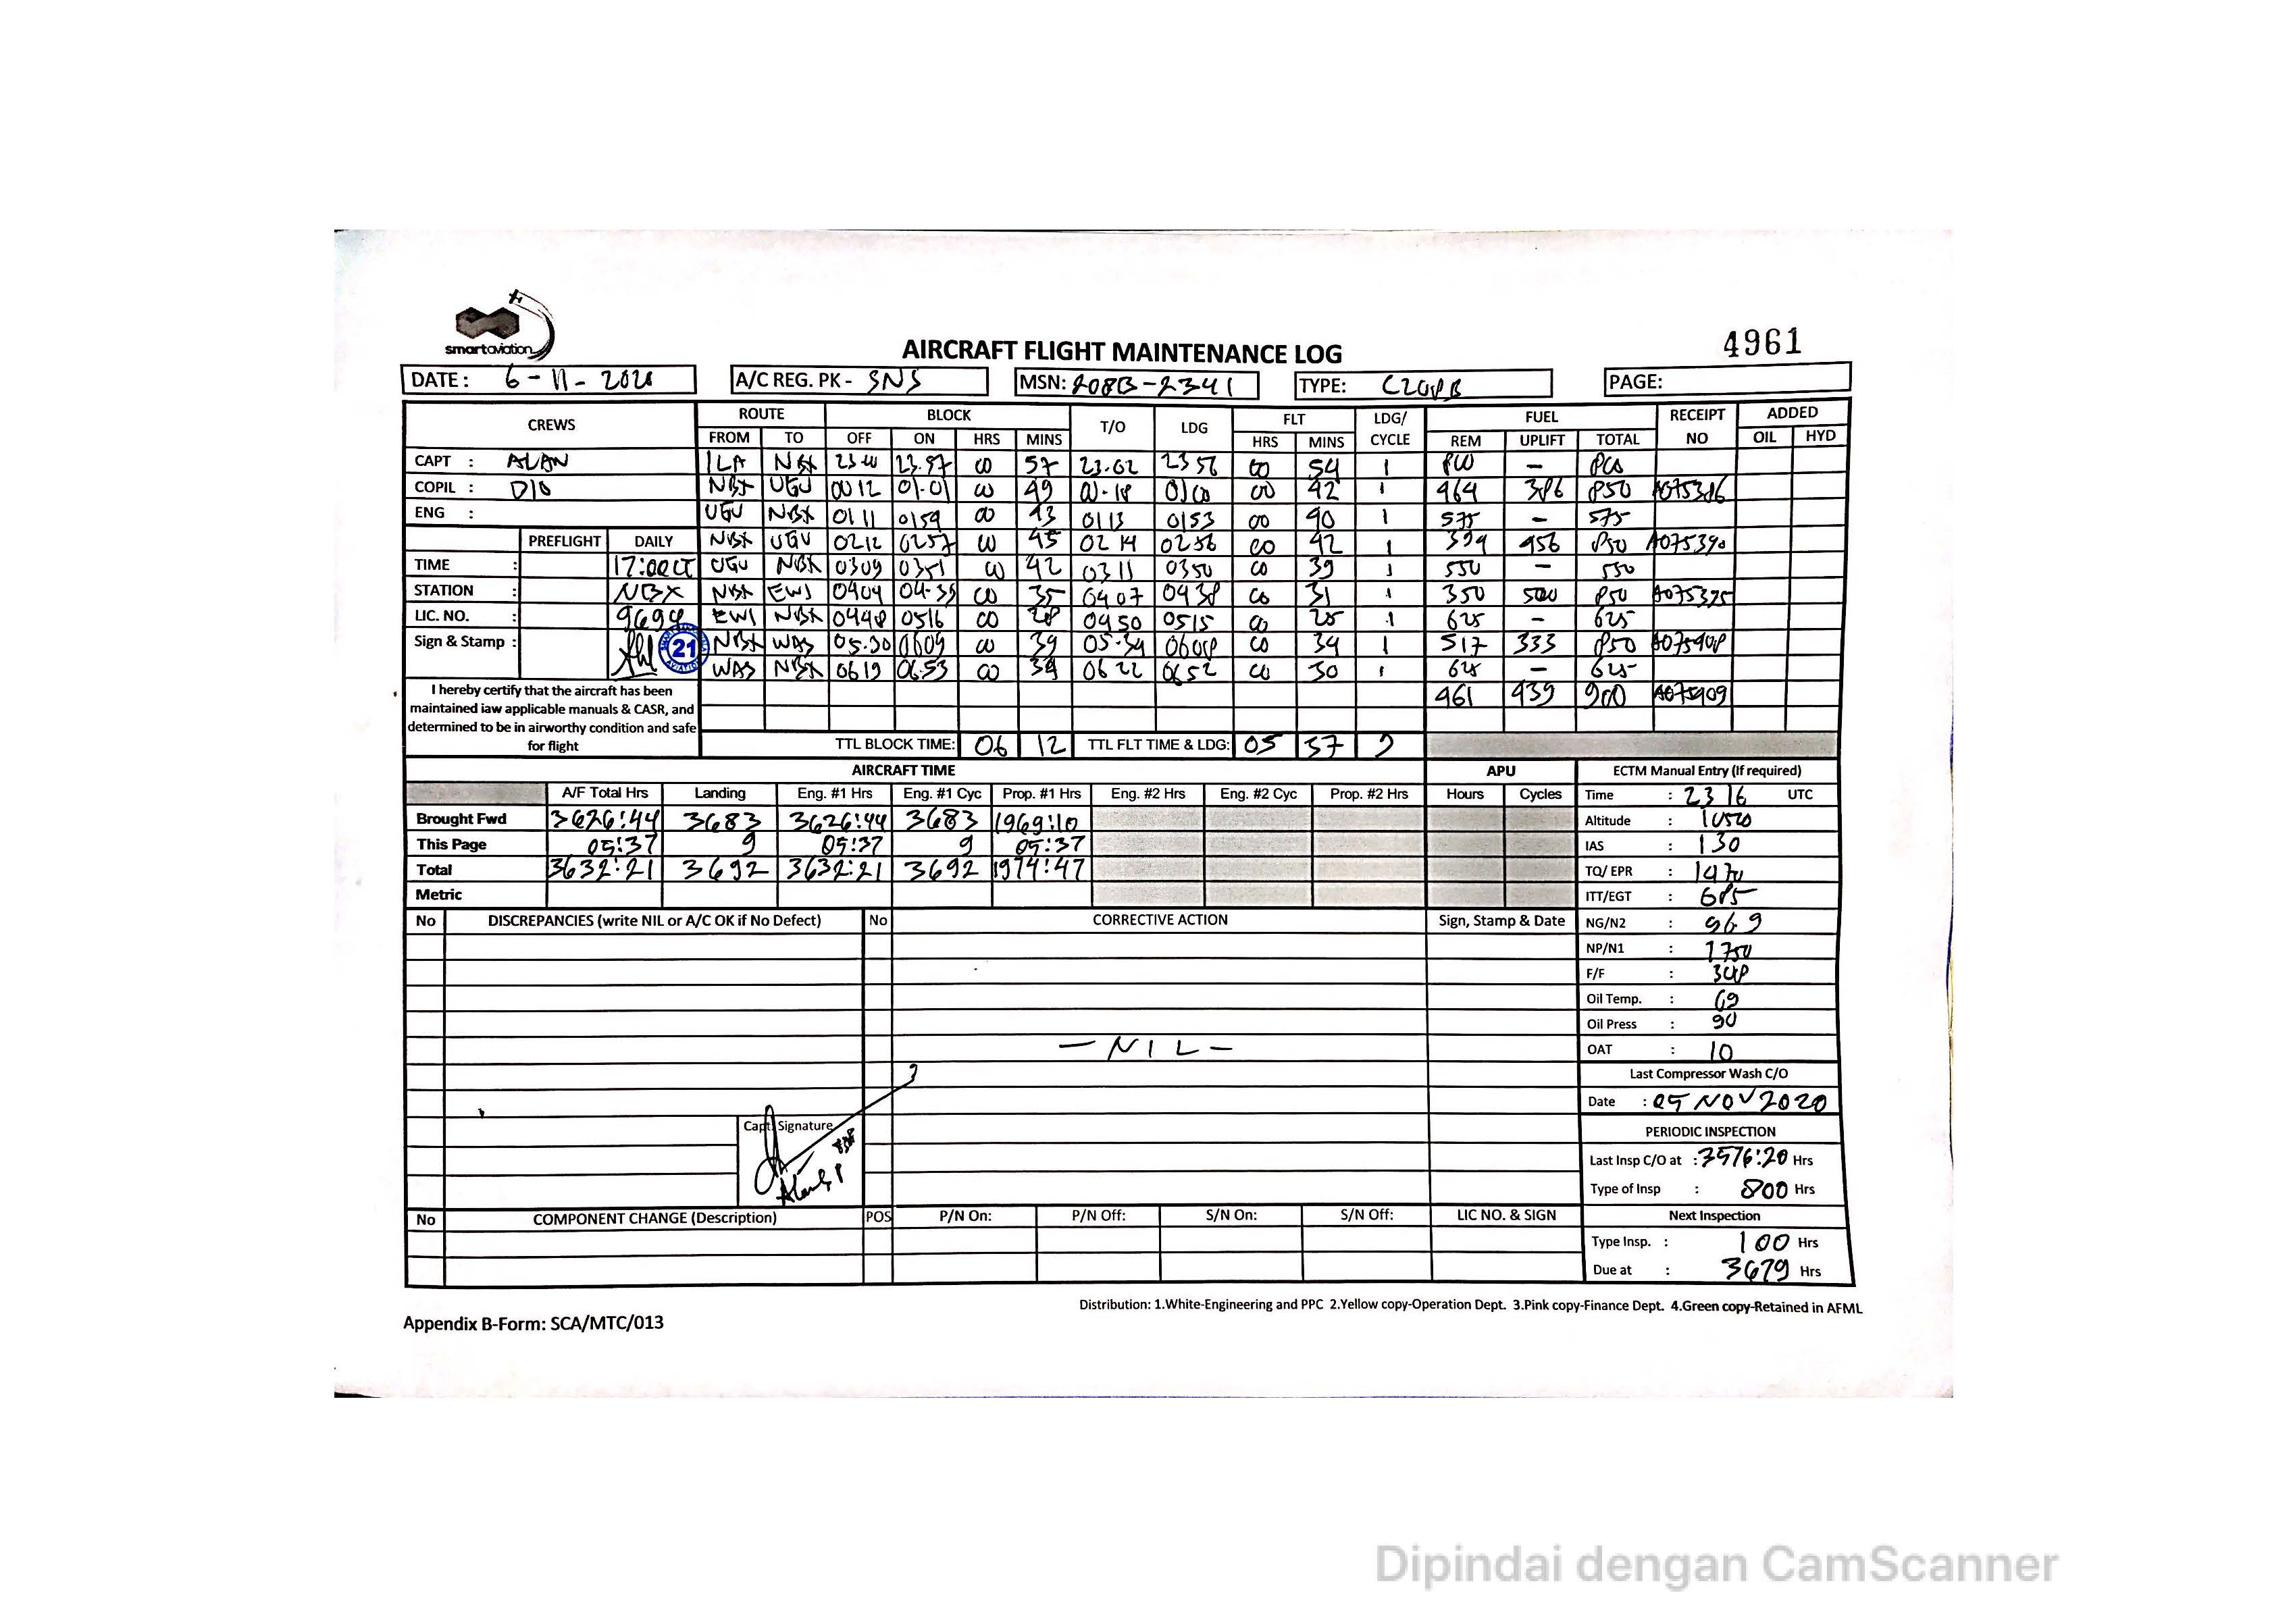 smartaviation
AIRCRAFT FLIGHT MAINTENANCE LOG
4961
DATE: 6-11-2020
A/C REG. PK- SNS
MSN: 208B-2341
TYPE: C208B
PAGE:
CREWS ROUTE BLOCK T/O LDG FLT LDG/ CYCLE FUEL RECEIPT NO ADDED
FROM TO OFF ON HRS MINS HRS MINS REM UPLIFT TOTAL OIL HYD
CAPT : ALAN ILA NBX 23.57 00 57 2356 00 54 1 -
COPIL : DIO NBX UGU 0012 01-01 00 49 00-18 0100 00 42 1 464 386 850 A075386
ENG : UGU NBX 0111 0154 00 43 0113 0153 00 40 1 575 - 575
PREFLIGHT DAILY NBX UGU 0212 0257 00 45 0214 0256 00 42 1 394 456 850 A075390
TIME : 17:00 UGU NBX 0309 0351 00 42 0311 0350 00 39 1 550 - 550
STATION : NBX NBX EWI 0404 04-39 00 35 0407 0438 00 31 1 350 500 850 A075395
LIC. NO. : 9694 EWI NBX 0448 0516 00 28 0450 0515 00 25 1 625 - 625
Sign & Stamp : 21 NBX WAS 05.30 0609 00 39 05-34 0608 00 34 1 517 333 850 A075408
WAS NBX 0619 06.53 00 34 0622 0652 00 30 1 625 - 625
461 439 900 A075409
I hereby certify that the aircraft has been
maintained iaw applicable manuals & CASR, and
determined to be in airworthy condition and safe
for flight
TTL BLOCK TIME: 06 12 TTL FLT TIME & LDG: 05 37 9
AIRCRAFT TIME APU ECTM Manual Entry (If required)
A/F Total Hrs Landing Eng. #1 Hrs Eng. #1 Cyc Prop. #1 Hrs Eng. #2 Hrs Eng. #2 Cyc Prop. #2 Hrs Hours Cycles Time : 2316 UTC
Brought Fwd 3626:44 3683 3626:44 3683 1969:10 Altitude : 10500
This Page 05:37 9 05:37 9 05:37 IAS : 130
Total 3632:21 3692 3632:21 3692 1974:47 TQ/ EPR : 1470
Metric ITT/EGT : 685
No DISCREPANCIES (write NIL or A/C OK if No Defect) No CORRECTIVE ACTION Sign, Stamp & Date NG/N2 : 96.9
NP/N1 : 1750
F/F : 348
Oil Temp. : 69
Oil Press : 90
- NIL - OAT : 10
Last Compressor Wash C/O
Date : 05 NOV 2020
Capt. Signature
PERIODIC INSPECTION
Last Insp C/O at : 3576:20 Hrs
Type of Insp : 800 Hrs
No COMPONENT CHANGE (Description) POS P/N On: P/N Off: S/N On: S/N Off: LIC NO. & SIGN Next Inspection
Type Insp. : 100 Hrs
Due at : 3679 Hrs
Distribution: 1.White-Engineering and PPC 2.Yellow copy-Operation Dept. 3.Pink copy-Finance Dept. 4.Green copy-Retained in AFML
Appendix B-Form: SCA/MTC/013
Dipindai dengan CamScanner